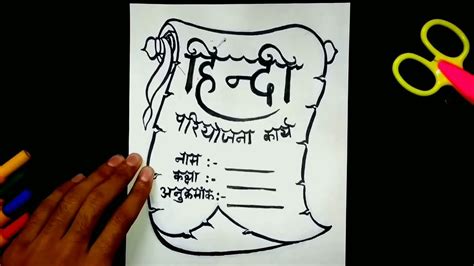 हिन्दी
परियोजना कार्य
नाम :- ______
कक्षा :- ______
अनुक्रमांक:- ______